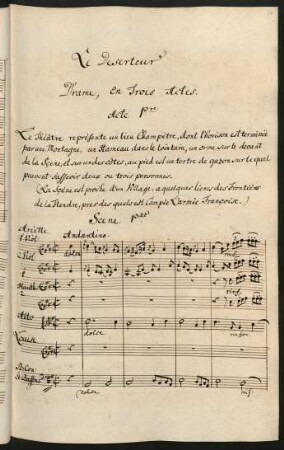 Le Deserteur
Drame, en Trois Actes.
Acte 1.re
Le Théâtre représente un lieu Champêtre, dont l'horison est terminée
par une Montagne, un Hameau dans le lointain, un orme sur le devant
de la Scene, et sur un des côtes, au pied est un tertre de gazon sur le quel
peuvent s'asseoir deux ou trois personnes.
(La Scène est proche d'un Village, a quelques lieues des Frontières
de la Flandre, pres des quels est Campée l'armée Françoise.)
Scene 1.ere
Ariette Andantino
1 Viol. dolce rinf.
2 Viol
Hautb. rinf.
Alto dolce rinfor.
Louise
Violon.
et Basson dolce rinf.